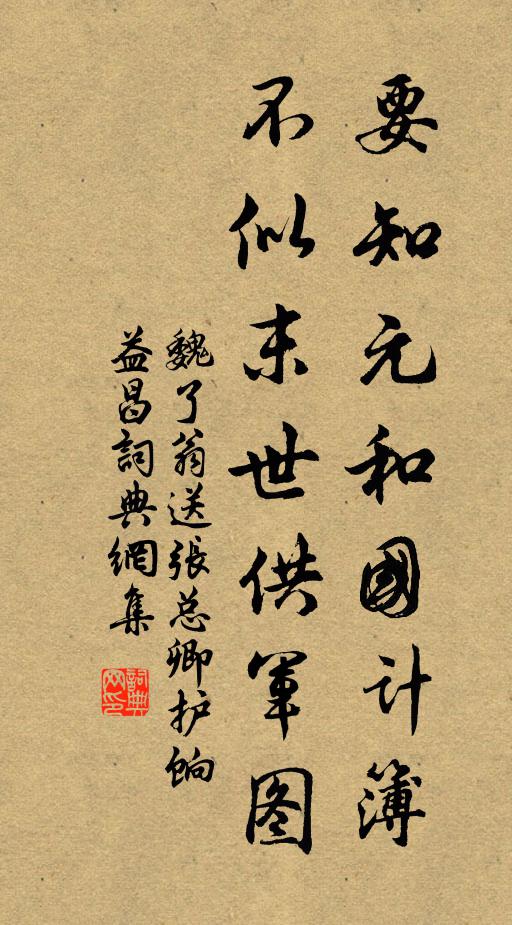 要知元和國计簿
不似末世供军图
魏了翁送張总卿护饷
益昌詞典網集
詞典网印